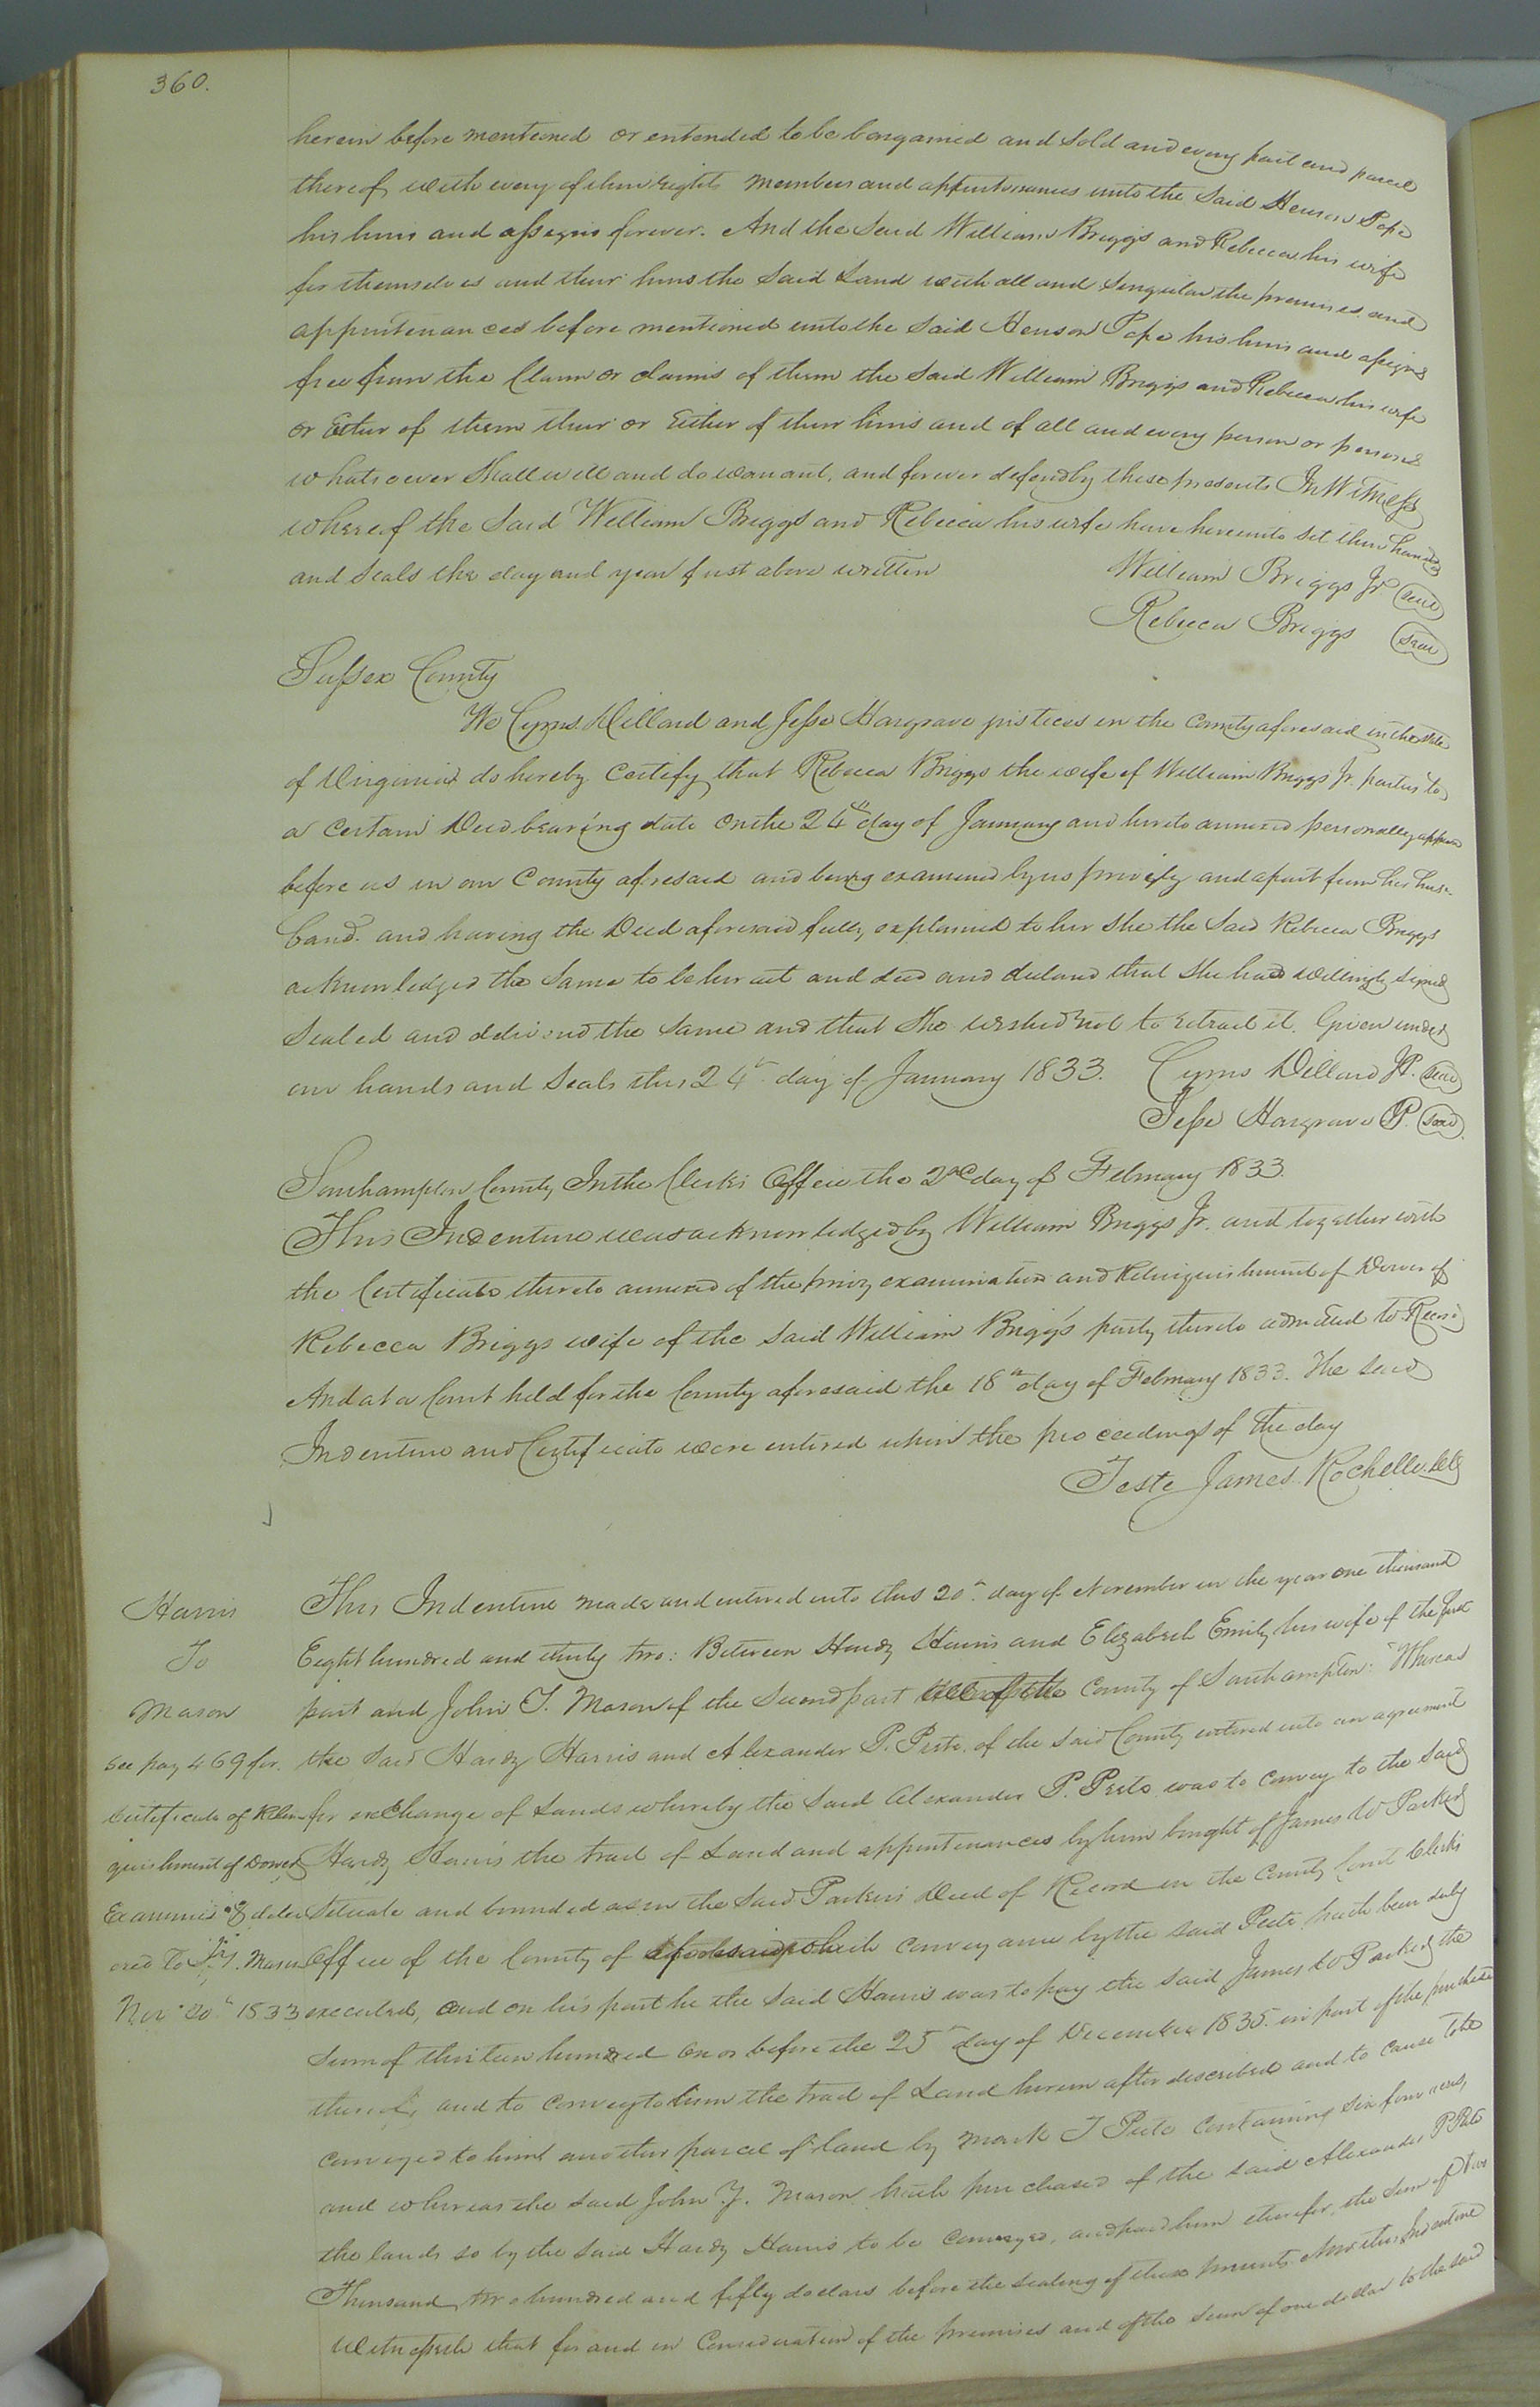 360.
herein before mentioned or entended to be bargained and Sold and every part and parcel
thereof with every of their rights Members and appurtenances unto the Said Henson Pope
his heirs and assigns forever. And the Said William Briggs and Rebecca his wife
for themselves and their heirs the Said Land with all and Singular the premises and
appurtenances before mentioned unto the Said Henson Pope his heirs and assigns
free from the Claim or claims of them the Said William Briggs and Rebecca his wife
or Either of them their or Either of their heirs and of all and every person or persons
whatsoever Shall will and do warrant, and forever defend by these presents In Witness
whereof the Said William Briggs and Rebecca his wife have hereunto Set their hands
and Seals the day and year first above written
William Briggs Jr Seal
Rebecca Briggs Seal
Sussex County
We Cyrus Dillard and Jesse Hargrave justices in the County aforesaid in the State
of Virginia do hereby Certify that Rebecca Briggs the wife of William Briggs Jr. parties to
a Certain Deed bearing date on the 24th day of January and hereto annexed personally
before us in our County aforesaid and being examined by us privily and apart from her hus-
band. and having the Deed aforesaid fully explained to her She the Said Rebecca Briggs
acknowledged the Same to be her act and deed and declared that She had willingly signed
Sealed and delivered the Same and that She wished not to retract it. Given under
our hands and Seals this 24th day of January 1833. Cyrus Dillard JP. Seal
Jesse Hargrave JP. Seal
Southampton County In the Clerks Office the 2nd day of February 1833.
This Indenture was acknowledged by William Briggs Jr. and together with
the Certificate thereto annexed of the privy examination and Relinquishment of Dower of
Rebecca Briggs wife of the Said William Briggs party thereto admitted to Record
And at a Court held for the County aforesaid the 18th day of February 1833. The Said
Indenture and Certificate were entered upon the proceedings of the day
Teste James Rochelle. Clk
Harris
To
Mason
See pay 469 for.
Certificate of Relin-
quishment of Dower
Examined & deliv
ered to Jn. Y. Mason
Novr 20th 1833
This Indenture made and entered into this 20th day of November in the year one thousand
Eight hundred and thirty two: Between Hardy Harris and Elizabeth Emily his wife of the first
part and John Y. Mason of the Second part all of the County of Southampton: Whereas
the Said Hardy Harris and Alexander P. Peete. of the Said County entered into an agreement
for exchange of Lands whereby the Said Alexander P. Peete was to convey to the Said
Hardy Harris the tract of Land and appurtenances by him bought of James W Parker
Situate and bounded as in the Said Parkers Deed of Record in the County Court Clerks
Office of the County of aforesaid which conveyance by the said Peete hath been duly
executed, and on his part he the Said Harris was to pay the Said James W Parker the
Sum of thirteen hundred on or before the 25th day of December 1835. in part of the purchase
thereof, and to convey to him the tract of Land herein after described and to cause to be
conveyed to him another parcel of land by Mark J Peete containing Six four acres,
and whereas the Said John Y. Mason hath purchased of the Said Alexander P Peete
the lands so by the Said Hardy Harris to be conveyed, and paid him therefor, the Sum of two
Thousand two hundred and fifty dollars before the Sealing of these presents. Now this Indenture
Witnesseth that for and in Consideration of the premises and of the Sum of one dollar to the Said